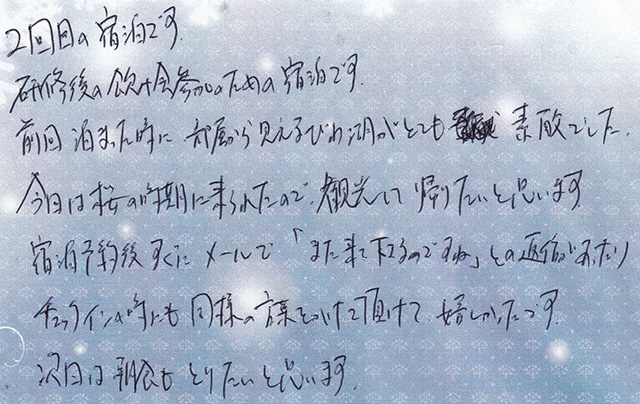 2回目の宿泊です。
研修後の飲み会参加のための宿泊です。
前回泊まった時に部屋から見えるびわ湖がとても素敵でした。
今日は桜の時期に来られたので、観光して帰りたいと思います
宿泊予約後すぐにメールで「また来て下さるのですね」との返信があったり
チェックイン時にも同様の言葉をかけて頂けて嬉しかったです。
次回は朝食もとりたいと思います。